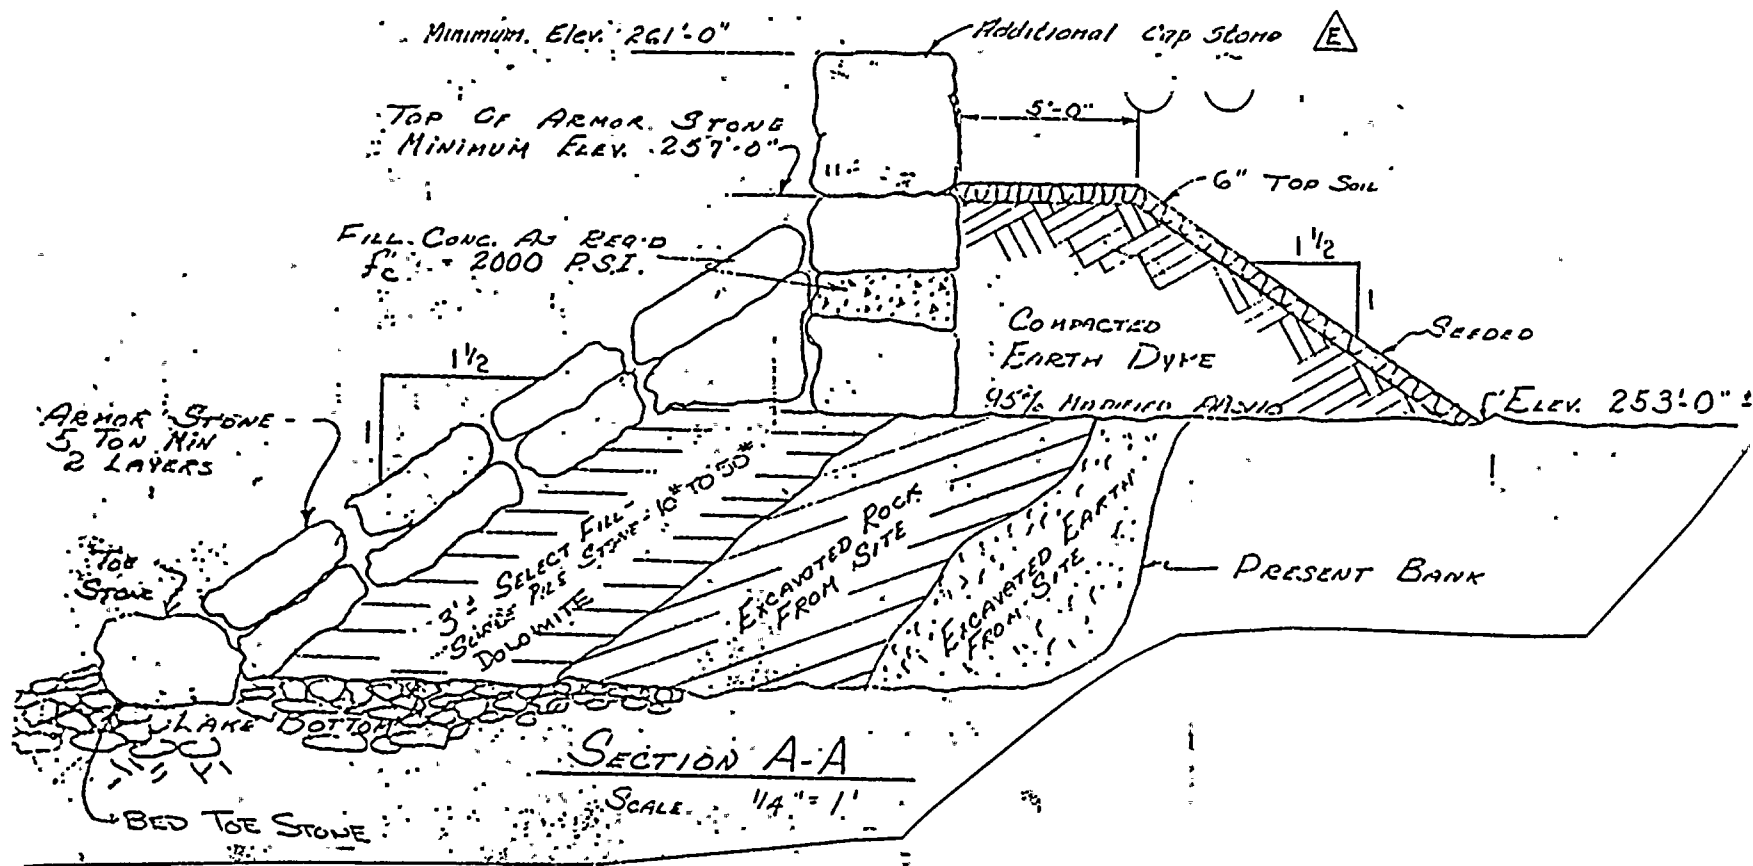 Minimum. Elev. 261'-0"
Additional Cap Stone
E
TOP OF ARMOR STONE
MINIMUM ELEV. 257'-0"
5'-0"
6" TOP SOIL
FILL CONC. AS REQ'D
f'c = 2000 P.S.I.
1 1/2
1
COMPACTED
EARTH DYKE
95% MODIFIED
SEEDED
ELEV. 253'-0" ±
1 1/2
1
ARMOR STONE -
5 TON MIN
2 LAYERS
TOE
STONE
3'± SELECT FILL -
PILE STONE - 10# TO 50#
DOLOMITE
EXCAVATED ROCK
FROM SITE
EXCAVATED EARTH
FROM SITE
PRESENT BANK
LAKE BOTTOM
BED TOE STONE
SECTION A-A
SCALE 1/4" = 1'